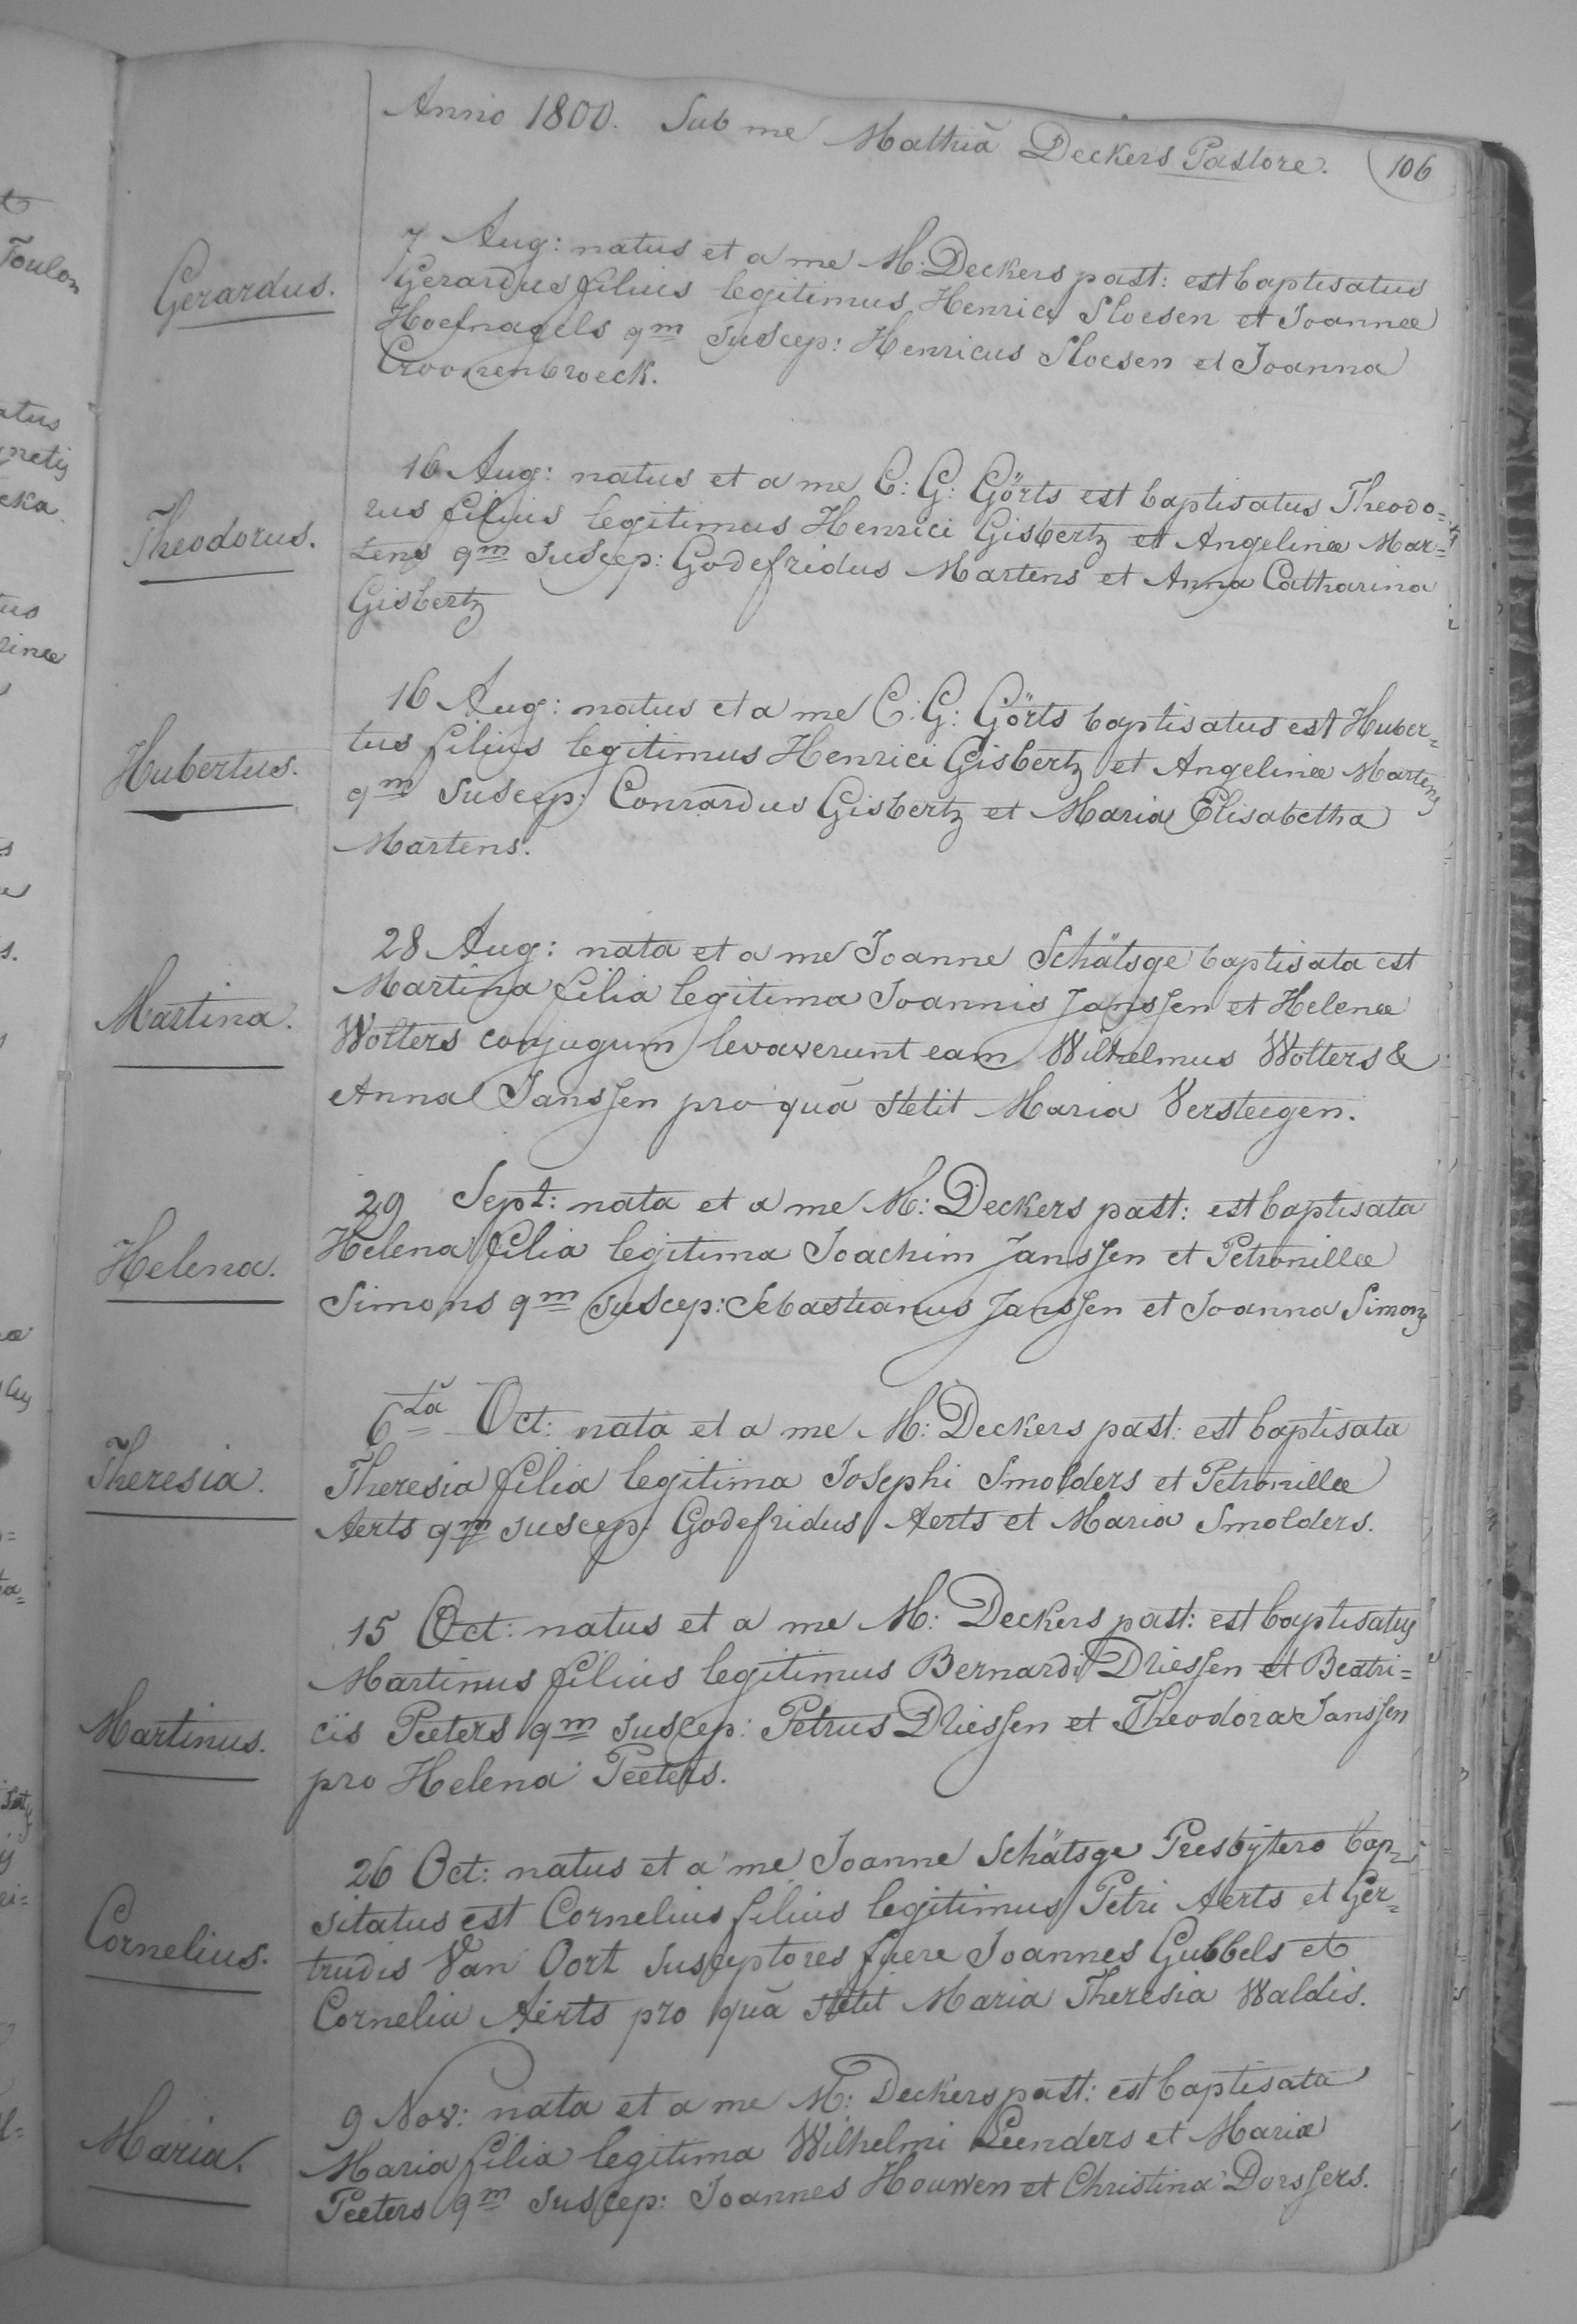 Anno 1800. Sub me Mathiā Deckers Pastore. 106
Gerardus.
7 Aug: natus et a me M: Deckers past: est baptisatus
Gerardus filius legitimus Henrici Sloesen et Joannæ
Hoefnagels qm suscep: Henricus Sloesen et Joanna
Croonenbroeck.
Theodorus.
16 Aug: natus et a me C: G: Görts est baptisatus Theodo=
rus filius legitimus Henrici Gisbertz et Angelinæ Mar=
tens qm suscep: Godefridus Martens et Anna Catharina
Gisbertz
Hubertus.
16 Aug: natus et a me C: G: Görts baptisatus est Huber=
tus filius legitimus Henrici Gisbertz et Angelinæ Martens
qm suscep: Conrardus Gisbertz et Maria Elisabetha
Martens.
Martina.
28 Aug: nata et a me Joanne Schätsge baptisata est
Martina filia legitima Joannis Janssen et Helenæ
Wolters conjugum levaverunt eam Wilhelmus Wolters &
Anna Janssen pro quā stetit Maria Versteegen.
Helena.
29 Sept: nata et a me M: Deckers past: est baptisata
Helena filia legitima Joachim Janssen et Petronillæ
Simons qm suscep: Sebastianus Janssen et Joanna Simons
Theresia.
6tā Oct: nata et a me M: Deckers past: est baptisata
Theresia filia legitima Josephi Smolders et Petronillæ
Aerts qm suscep: Godefridus Aerts et Maria Smolders.
Martinus.
15 Oct: natus et a me M: Deckers past: est baptisatus
Martinus filius legitimus Bernardi Driessen et Beatri=
cis Peeters qm suscep: Petrus Driessen et Theodora Janssen
pro Helena Peeters.
Cornelius.
26 Oct: natus et a me Joanne Schätsge Presbÿtero bap=
sitatus est Cornelius filius legitimus Petri Aerts et Ger=
trudis Van Oort susceptores fuere Joannes Gubbels et
Cornelia Aerts pro quā stetit Maria Theresia Waldis.
Maria.
9 Nov: nata et a me M: Deckers past: est baptisata
Maria filia legitima Wilhelmi Leenders et Mariæ
Peeters qm suscep: Joannes Houwen et Christina Dorssers.